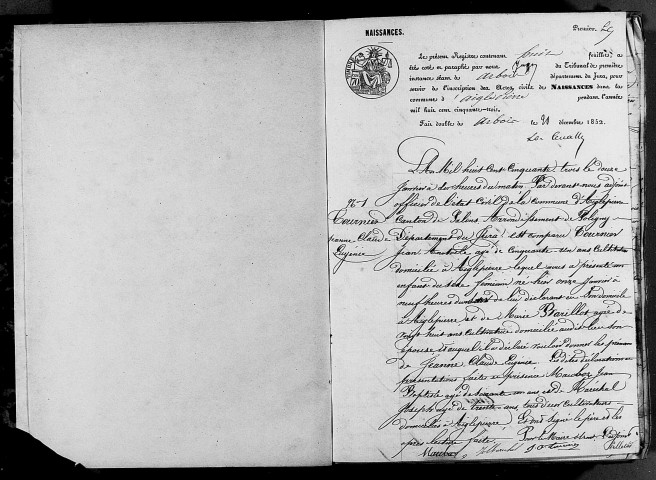 NAISSANCES.
Premier
Le présent Registre contenant huit feuillets, a
été coté et paraphé par nous Juge du Tribunal de première
instance séant à Arbois département du Jura, pour
servir à l'inscription des Actes civils de NAISSANCES dans la
commune d'Aiglepierre pendant l'année
mil huit cent cinquante-trois.
Fait double à Arbois le 21 décembre 1852.
L'An Mil huit Cent Cinquante trois le douze
Janvier à dix heures du matin Par devant nous adjoint
officier de l'état Civil de la commune d'Aiglepierre
N° 1
Tournier
Jeanne Claude
Eugénie
Canton de Salins Arrondissement de Poligny
Département du Jura est comparu Tournier
Jean agé de Cinquante un ans Cultivateur
domicilié à Aiglepierre lequel nous a présenté un
enfant du sexe féminin né hier onze Janvier à
neuf heures du de lui déclarant en son domicile
à Aiglepierre et de Marie agée de
huit ans Cultivatrice domiciliée audit lieu son
épouse et auquel il a déclaré vouloir donner les prénoms
de Jeanne Claude Eugénie Lesdites déclaration et
présentation faites en présence Jean
Baptiste agé de ans et de Maréchal
Joseph agé de trente ans, tous deux Cultivateurs
domiciliés à Aiglepierre Et ont signé le père et les
après lecture faite